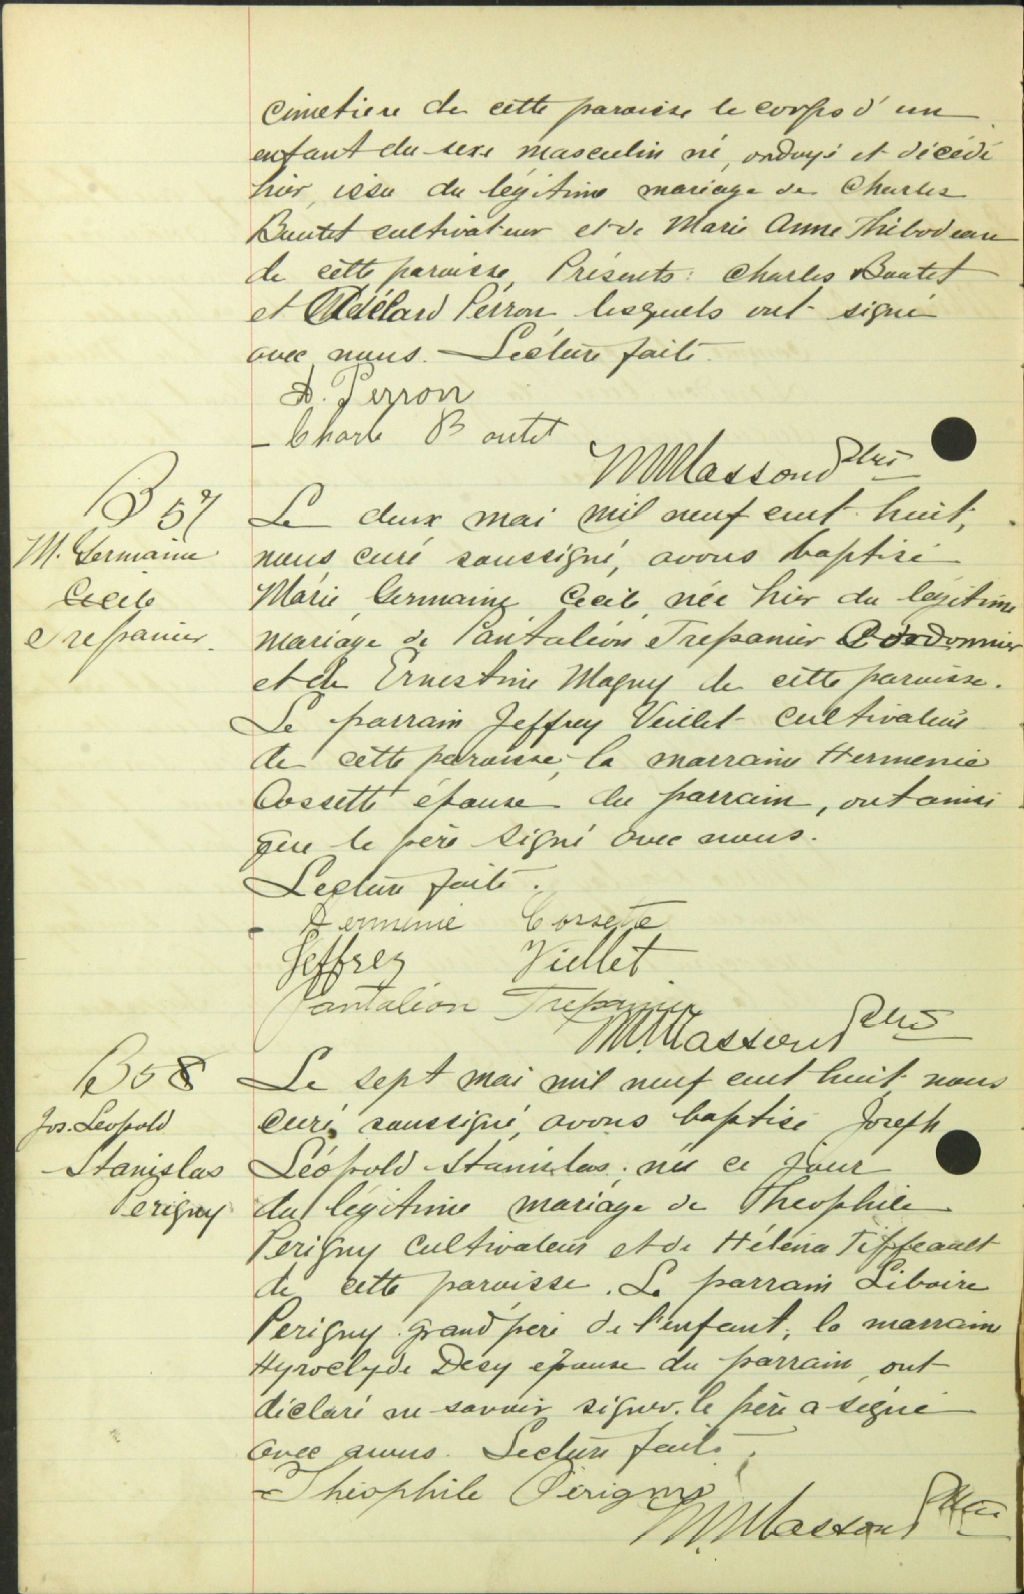 Cimetiere de cette paroisse le corps d'un
enfant du sexe masculin né, ondoyé et décédé
hier, issu du légitime mariage de Charles
Boutet cultivateur et de Marie Anne Thibodeau
de cette paroisse. Présents: Charles Boutet
et Adélard Perron lesquels ont signé
avec nous. Lecture faite.
A. Perron
Charle Boutet
Masson Ptre
B 57
M. Germaine
Cecile
Trepanier
Le deux mai mil neuf cent huit,
nous curé soussigné, avons baptisé
Marie Germaine Cecile née hier du légitime
mariage de Pantaléon Trepanier Cordonnier
et de Ernestine Magny de cette paroisse.
Le parrain Jeffrey Veillet cultivateur
de cette paroisse, la marraine Hermenie
Cossette épouse du parrain, ont ainsi
que le père signé avec nous.
Lecture faite.
Hermenie Cossette
Jeffrey Viellet
Pantaléon Trepanier
Masson Ptre
B 58
Jos. Leopold
Stanislas
Perigny
Le sept mai mil neuf cent huit, nous
curé soussigné, avons baptisé Joseph
Léopold Stanislas, né ce jour
du légitime mariage de Theophile
Perigny cultivateur et de Héléna Tiffeault
de cette paroisse. Le parrain Liboire
Perigny grand père de l'enfant, la marraine
Hyroclyde Desy épouse du parrain, ont
déclaré ne savoir signer. le père a signé
avec nous. Lecture faite.
Théophile Périgny
Masson Ptre